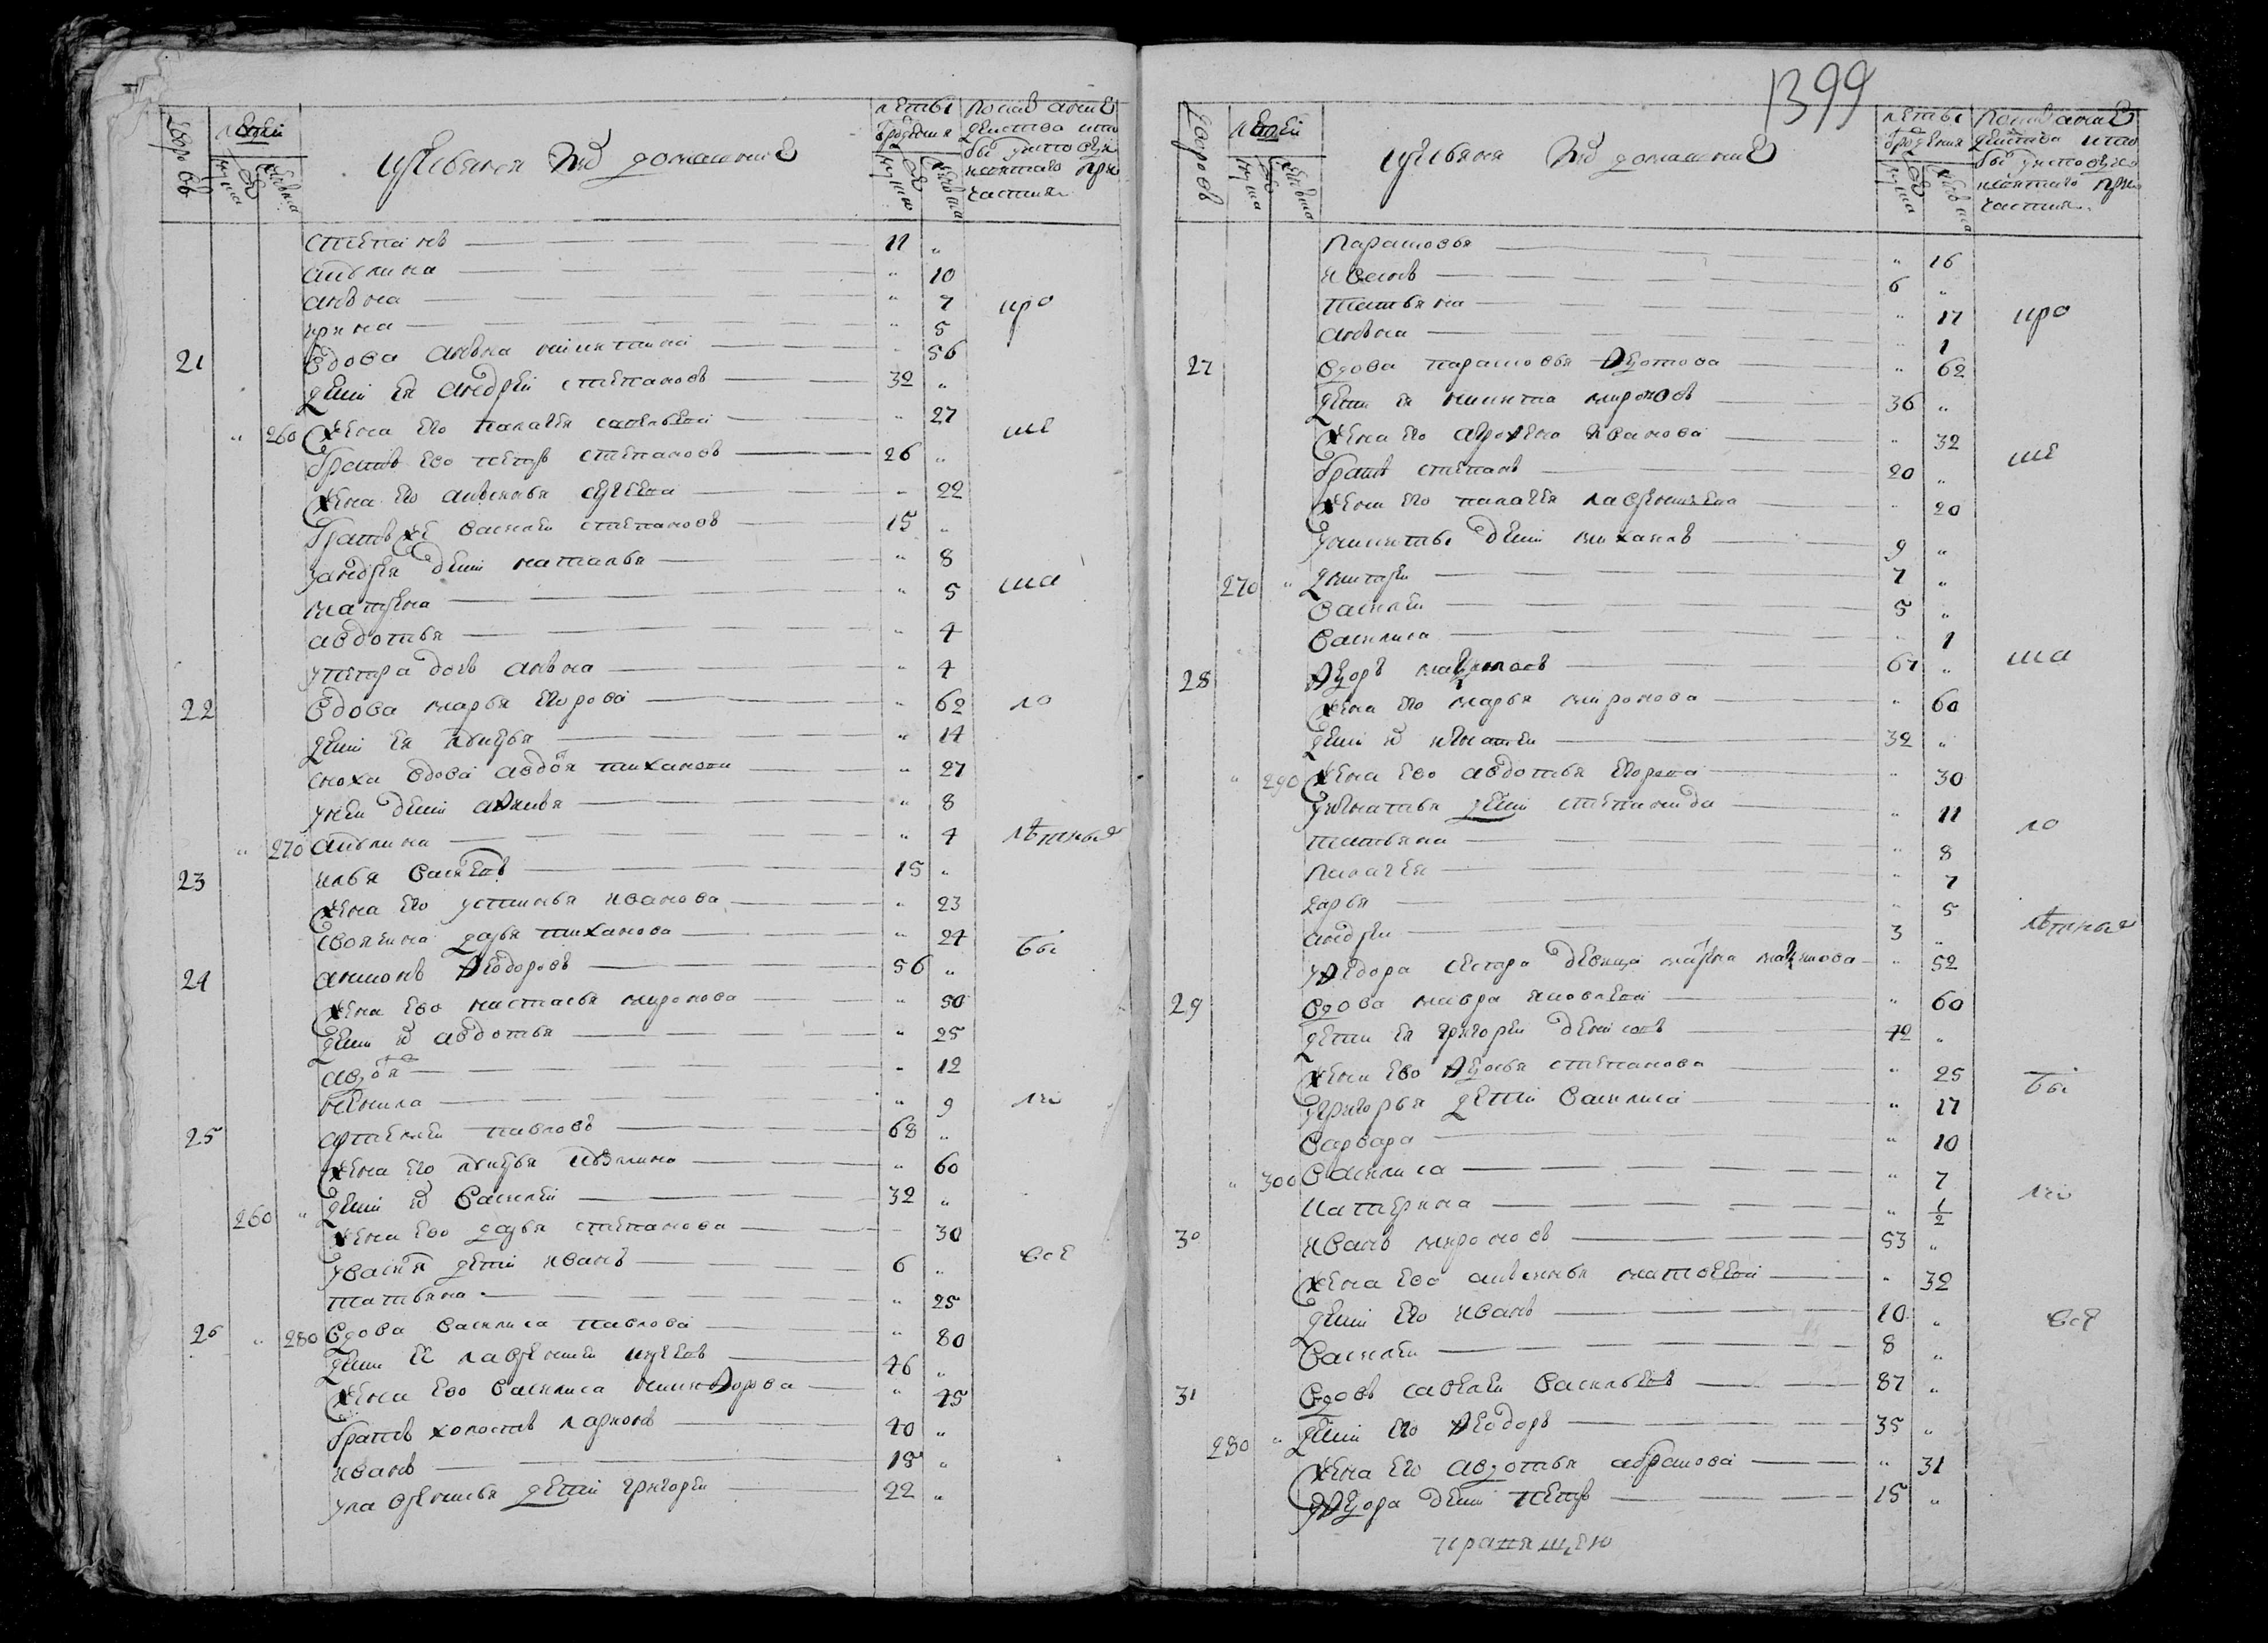 дворовъ
людей
мужска
женска
крестьяня и их домашние
лѣты
рождения
мужска
женска
степанъ 11 „
акулина „ 10
анна „ 7
ирина „ 5
про
21 вдова анна никитина „ 56
дети ея андрей степановъ 32 „
„ 260 жена его палагея савельева „ 27
ше
братъ ево петръ степановъ 26 „
жена его аксинья „ 22
братъ же василей степановъ 15 „
у андрея дети наталья „ 8
матрена „ 5
ша
авдотья „ 4
у петра дочь анна „ 4
22 вдова марья егорова „ 62
ло
дети ея лукерья „ 14
сноха вдова авдотья тиханова „ 27
у неи дети афимья „ 8
„ 270 акулина „ 4
лѣтные
23 илья васильевъ 15 „
жена его устинья иванова „ 23
своячина дарья тиханова „ 24
бы
24 антонъ феодоровъ 56 „
жена ево настасья миронова „ 50
дети их авдотья „ 25
авдотья „ 12
ненила „ 9
ли
25 артемей павловъ 68 „
жена его лукерья „ 60
260 „ дети их василей 32 „
жена ево дарья степанова „ 30
у василья дети иванъ 6 „
все
татьяна „ 25
26 „ 280 вдова василиса павлова „ 80
дети ее лаврентей 46 „
жена ево василиса никифорова „ 45
братъ холостъ ларионъ 40 „
иванъ 18 „
у лаврентья дети григорей 22 „
1399
дворовъ
людей
мужска
женска
крестьяня и их домашние
лѣты
рождения
мужска
женска
парасковья „ 16
иванъ 6 „
татьяна „ 11
анна „ 1
про
27 вдова парасковья федотова „ 62
дети ея никита мироновъ 36 „
жена его афросенья иванова „ 32
братъ степанъ 20 „
ше
жена его палагея лаврентьева „ 20
у никиты дети михаила 9 „
270 „ дмитрей 7 „
василей 5 „
василиса „ 1
28 федоръ максимовъ 67 „
ша
жена его марья миронова „ 60
дети их игнатей 32 „
„ 290 жена ево авдотья егорова „ 30
у игнатья дети степанида „ 11
татьяна „ 8
ло
палагея „ 7
дарья „ 5
андрей 3 „
лѣтные
у федора сестра девица марина максимова „ 52
29 вдова мавра яковлева „ 60
дети ея григорей денисовъ 42 „
жена ево федосья степанова „ 25
бы
у григорья дети василиса „ 17
варвара „ 10
„ 300 василиса „ 7
катерина „ 1/2
ли
30 иванъ мироновъ 53 „
жена ево аксинья матвеева „ 32
дети его иванъ 10 „
все
василей 8 „
31 вдовъ савелей васильевъ 87 „
280 „ дети его феодоръ 35 „
жена его авдотья абрамова „ 31
у федора дети петръ 15 „